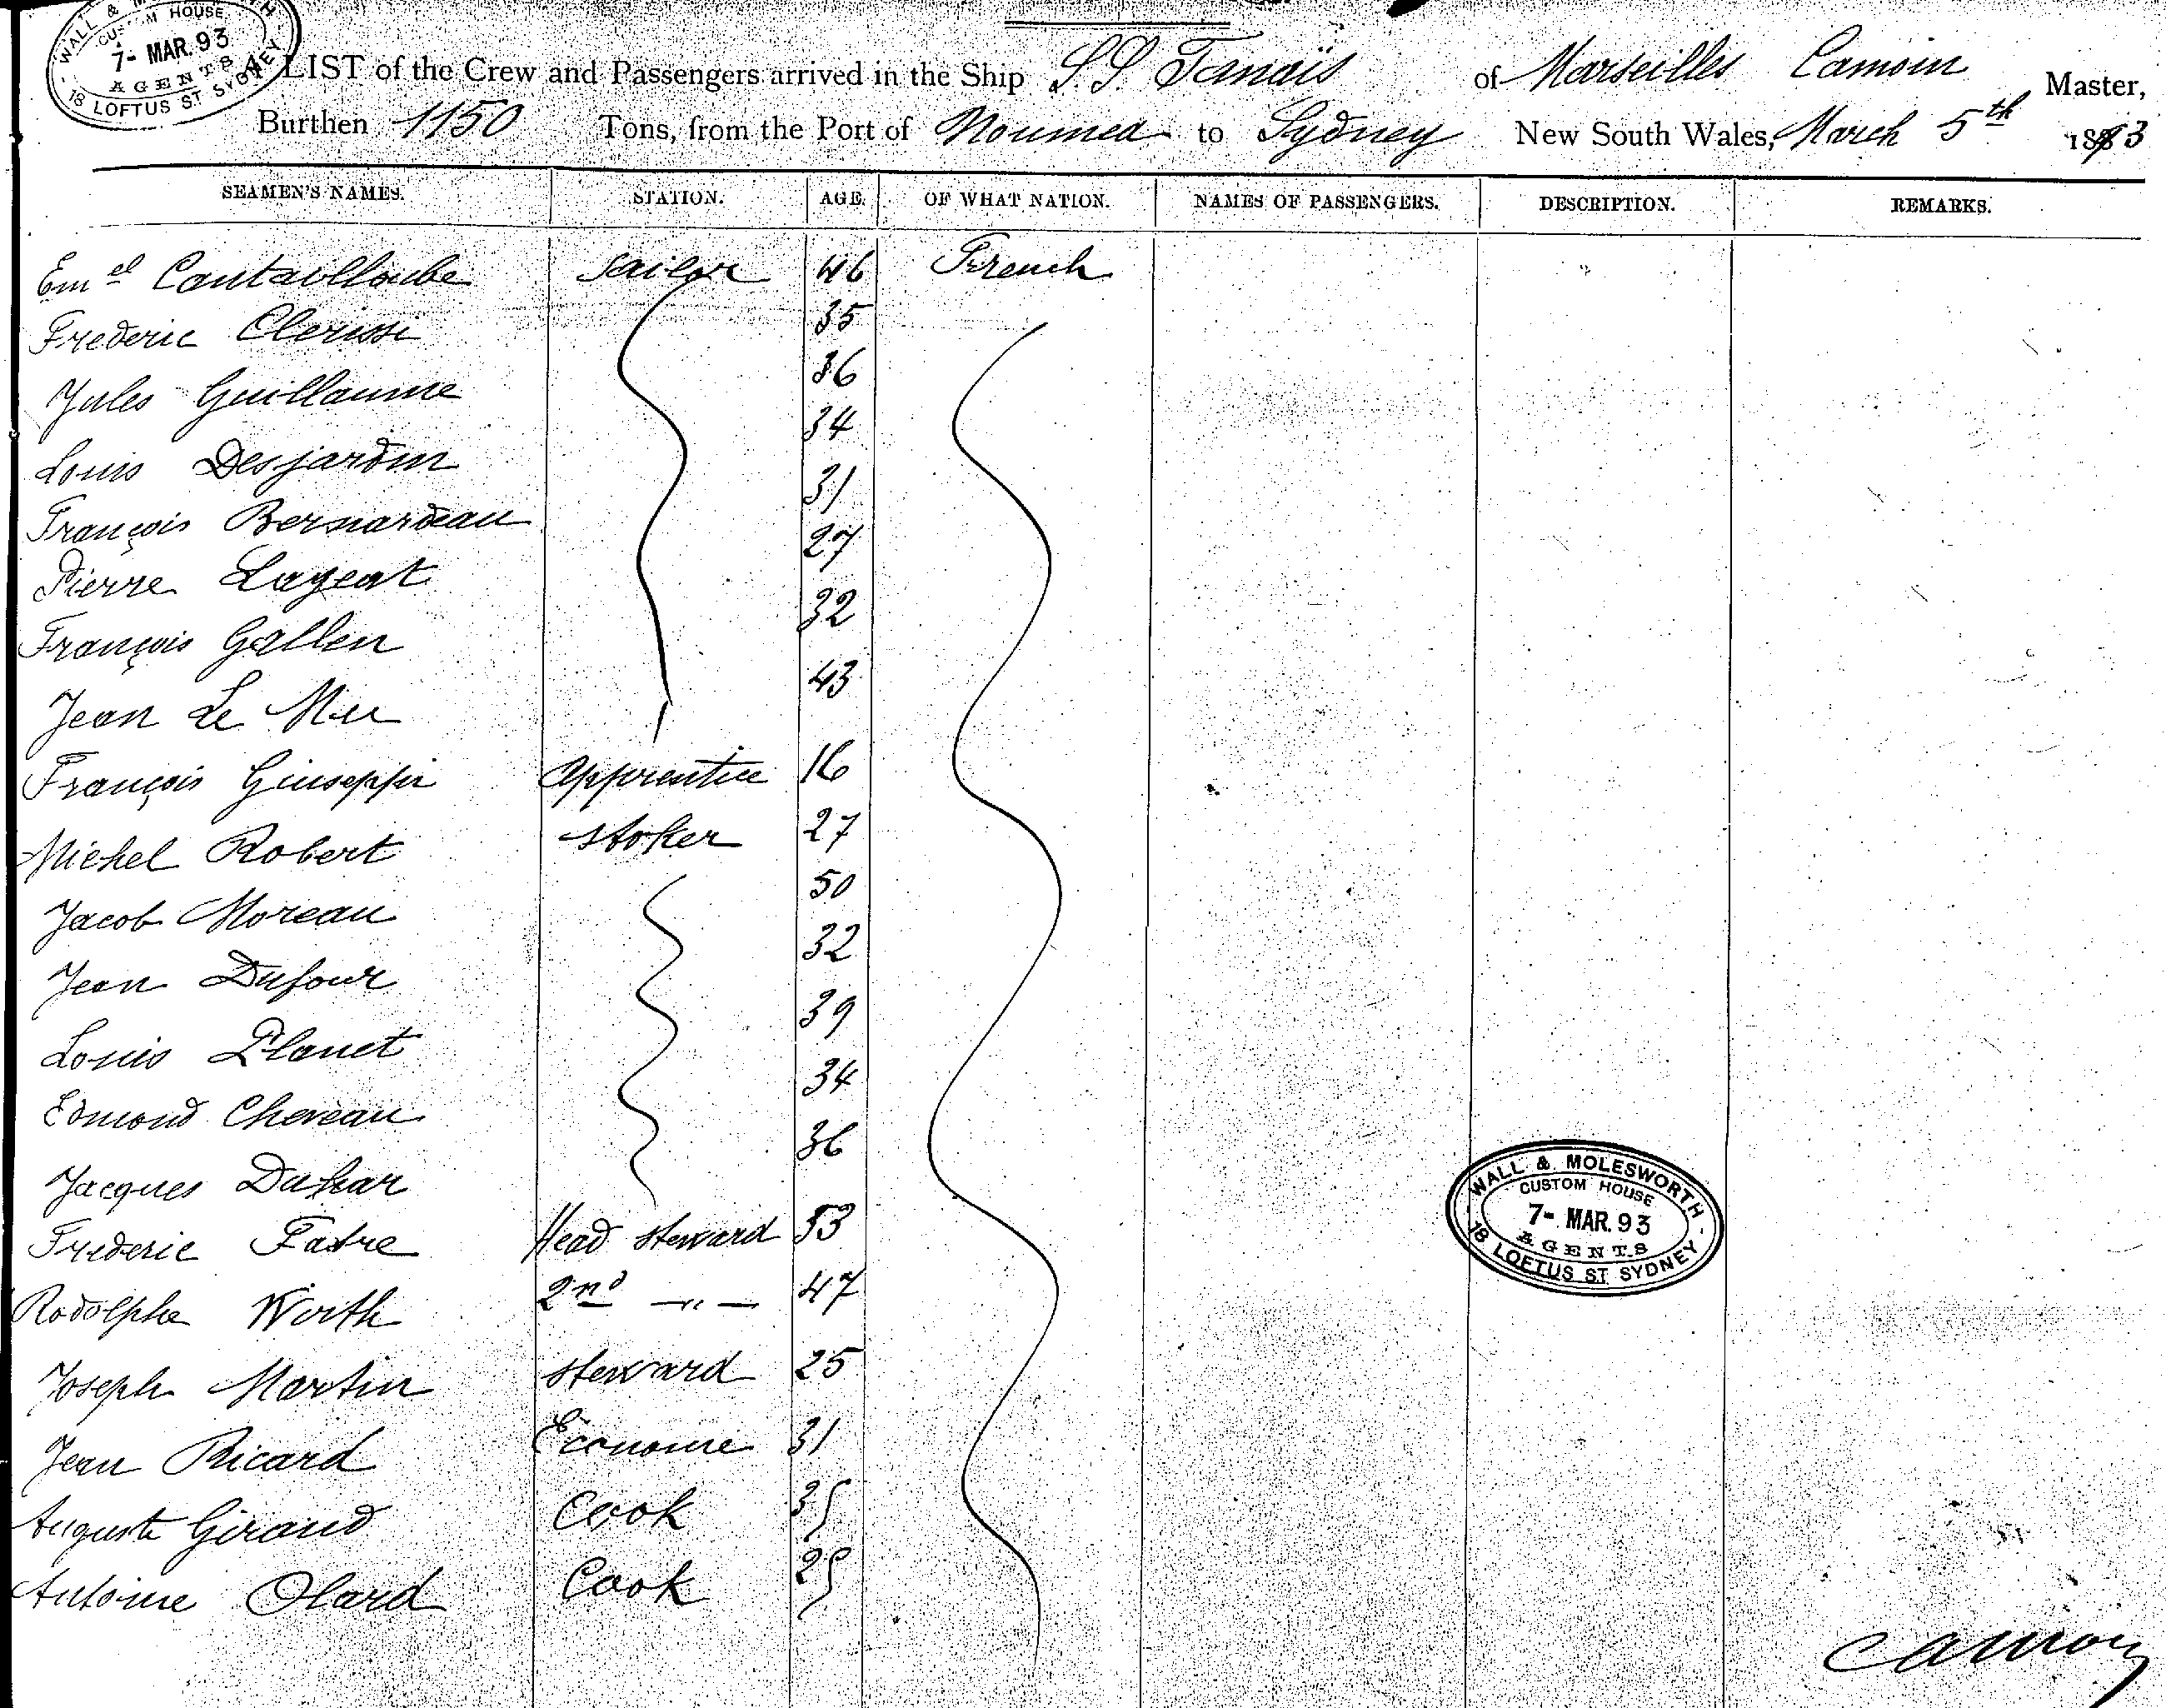 WALL & MOLESWORTH
CUSTOM HOUSE
7- MAR. 93
AGENTS
18 LOFTUS ST SYDNEY
A LIST of the Crew and Passengers arrived in the Ship S.S. Tanaïs of Marseilles Camoin Master,
Burthen 1150 Tons, from the Port of Noumea to Sydney New South Wales, March 5th 1893
SEAMEN'S NAMES. STATION. AGE. OF WHAT NATION. NAMES OF PASSENGERS. DESCRIPTION. REMARKS.
Em el Cantaulloube Sailor 46 French
Frederic Clerissi 35
Jules Guillaume 36
Louis Desjardin 34
François Bernardeau 31
Pierre Lageat 27
François Gallen 32
Jean Le Mée 43
François Giuseppi Apprentice 16
Michel Robert Stoker 27
Jacob Moreau 50
Jean Dufour 32
Louis Planet 39
Edmond Cheveau 34
Jacques Duhar 36
Frederic Fabre Head Steward 53
Rodolphe Wirth 2nd — " — 47
Joseph Martin Steward 25
Jean Ricard Econome 31
Auguste Giraud Cook 35
Antoine Olard Cook 25
WALL & MOLESWORTH
CUSTOM HOUSE
7- MAR. 93
AGENTS
18 LOFTUS ST SYDNEY
Camoin